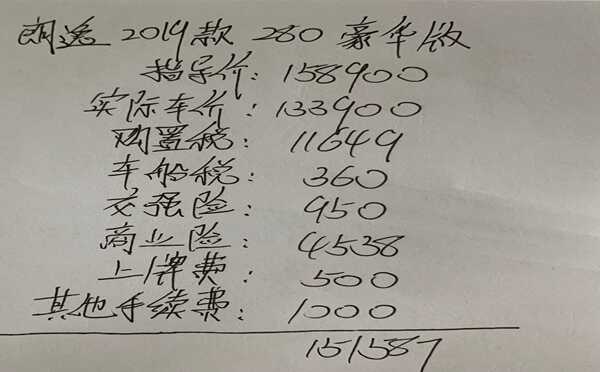 朗逸 2019款 280 豪华版
指导价: 158900
实际车价: 133900
购置税: 11649
车船税: 360
交强险: 950
商业险: 4538
上牌费: 500
其他手续费: 1000
151587